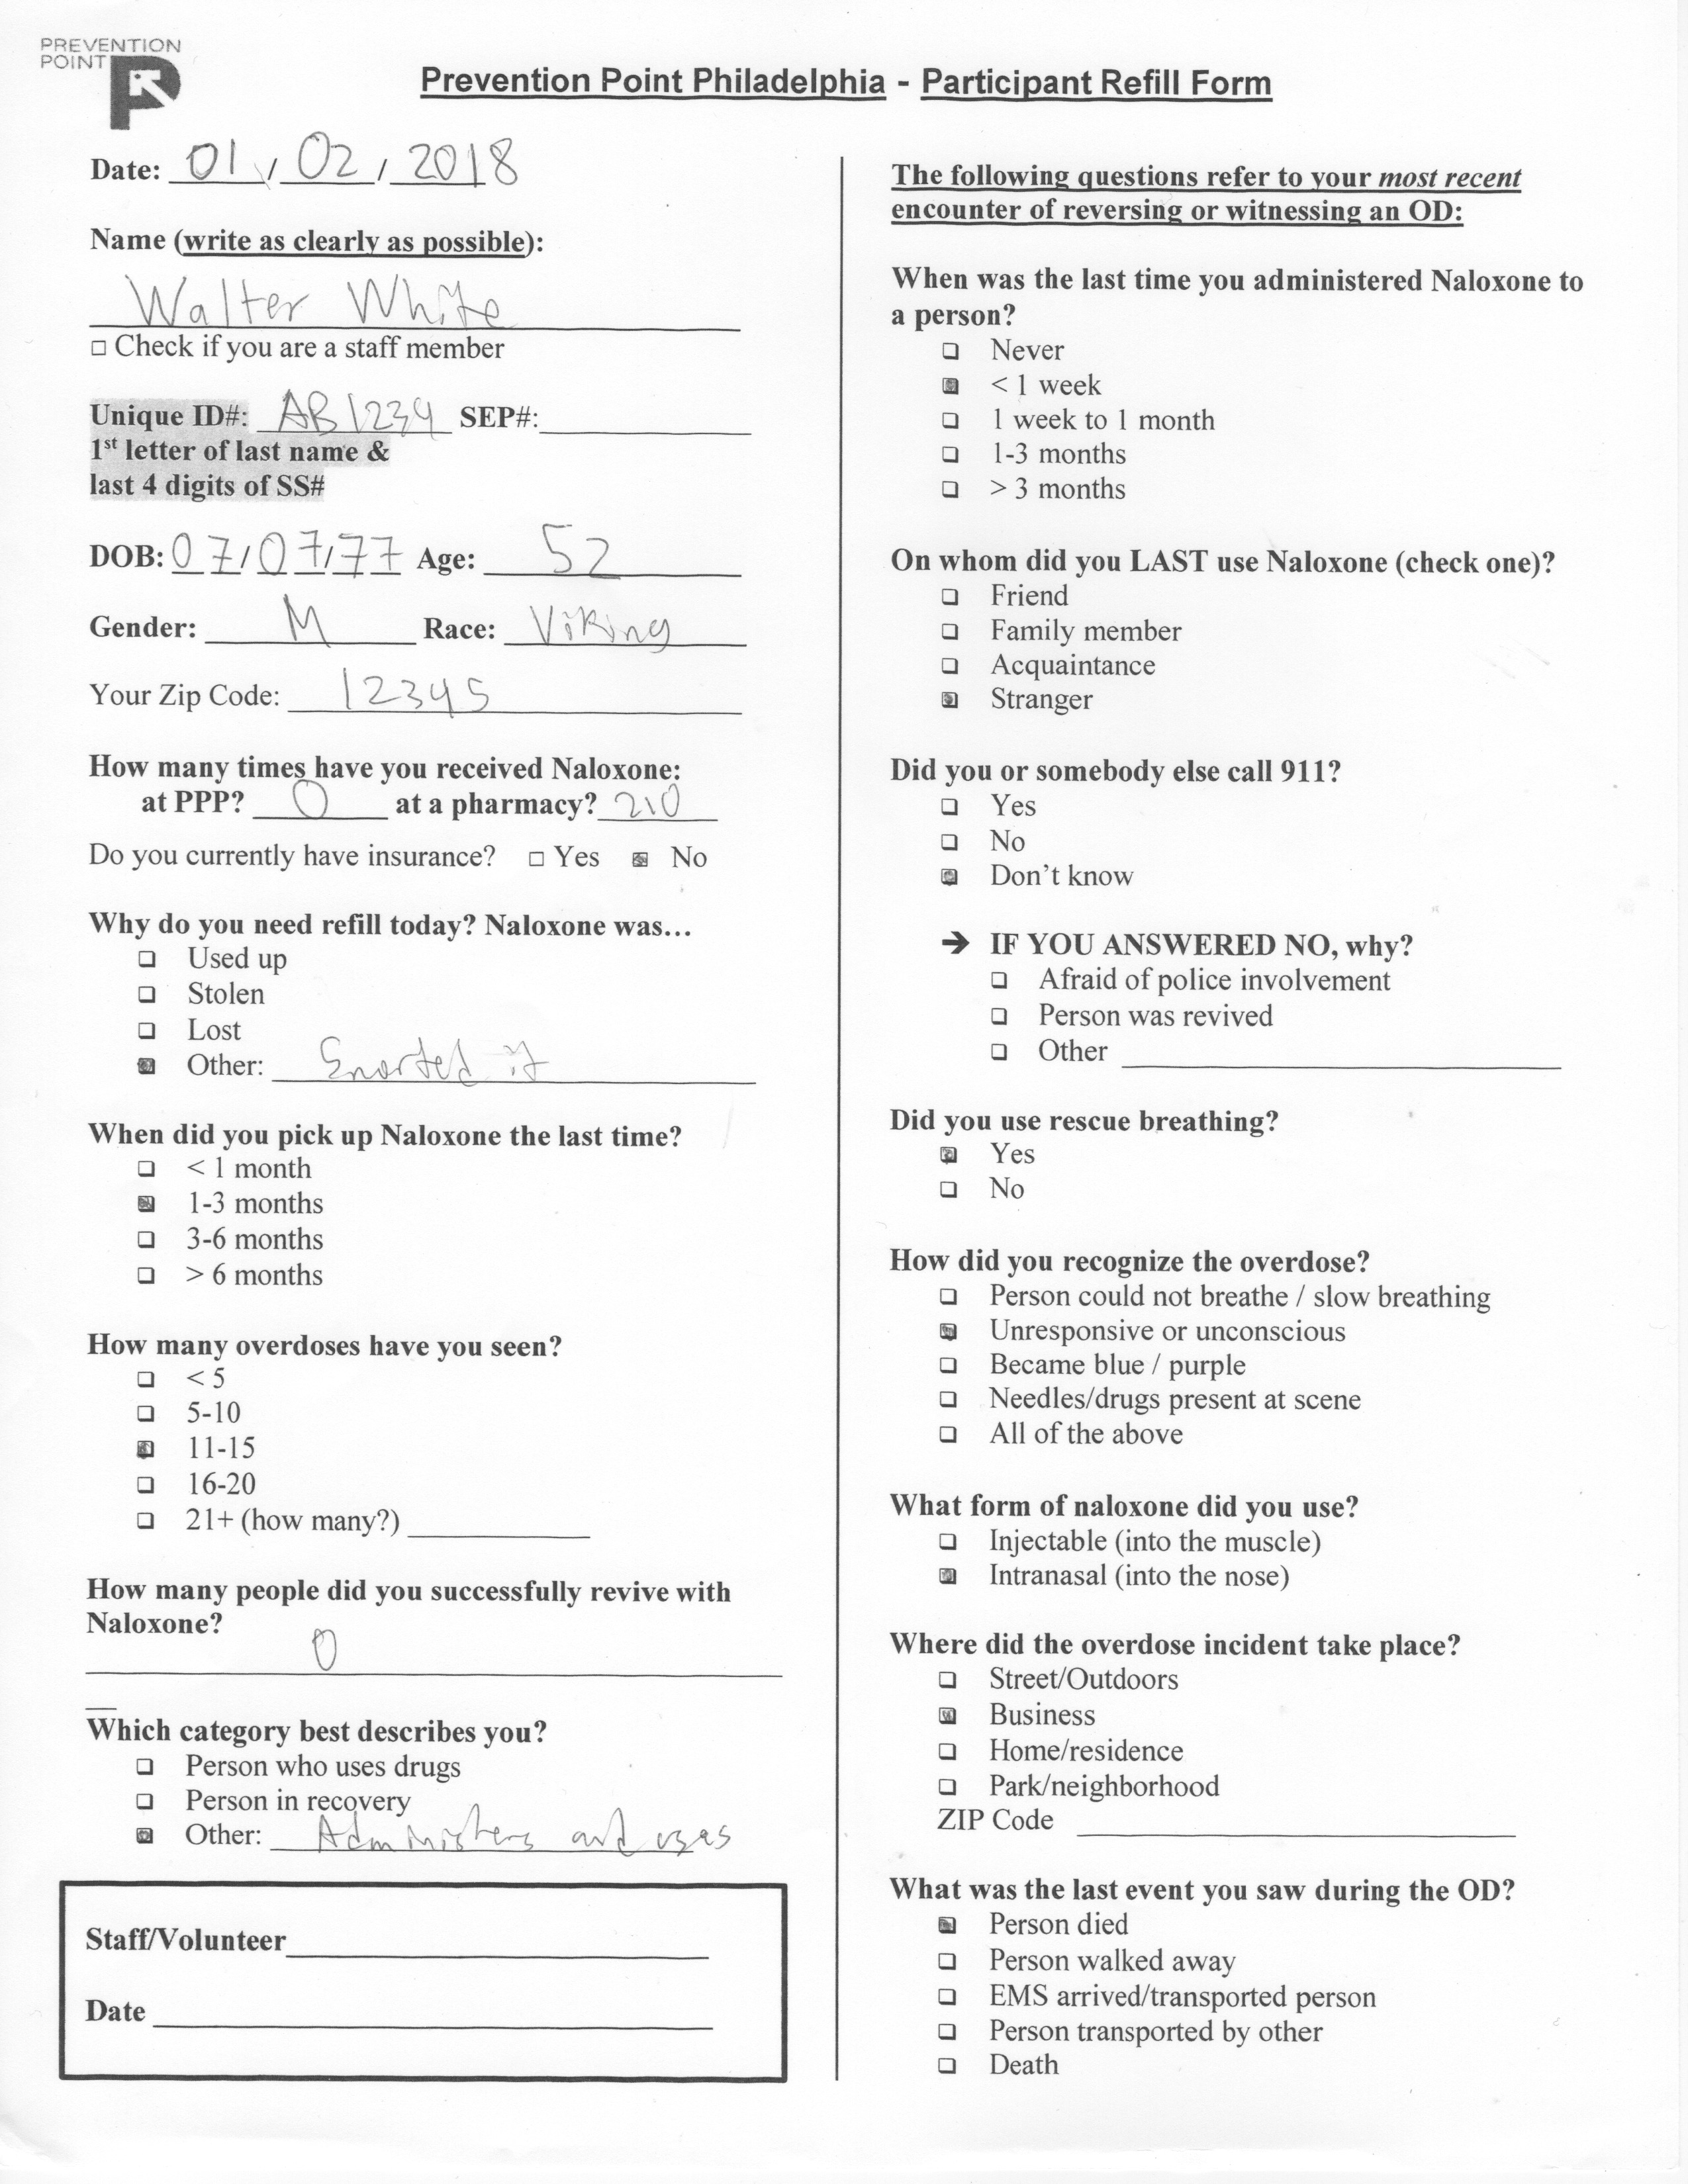 PREVENTION
POINT
Prevention Point Philadelphia - Participant Refill Form
Date: 01 / 02 / 2018
Name (write as clearly as possible):
Walter White
☐ Check if you are a staff member
Unique ID#: AB1234 SEP#:
1st letter of last name &
last 4 digits of SS#
DOB: 07/07/77 Age: 52
Gender: M Race: Viking
Your Zip Code: 12345
How many times have you received Naloxone:
at PPP? 0 at a pharmacy? 210
Do you currently have insurance? ☐ Yes ☒ No
Why do you need refill today? Naloxone was...
☐ Used up
☐ Stolen
☐ Lost
☒ Other: Snorted it
When did you pick up Naloxone the last time?
☐ < 1 month
☒ 1-3 months
☐ 3-6 months
☐ > 6 months
How many overdoses have you seen?
☐ < 5
☐ 5-10
☒ 11-15
☐ 16-20
☐ 21+ (how many?)
How many people did you successfully revive with
Naloxone?
0
Which category best describes you?
☐ Person who uses drugs
☐ Person in recovery
☒ Other: Administers and uses
Staff/Volunteer
Date
The following questions refer to your most recent
encounter of reversing or witnessing an OD:
When was the last time you administered Naloxone to
a person?
☐ Never
☒ < 1 week
☐ 1 week to 1 month
☐ 1-3 months
☐ > 3 months
On whom did you LAST use Naloxone (check one)?
☐ Friend
☐ Family member
☐ Acquaintance
☒ Stranger
Did you or somebody else call 911?
☐ Yes
☐ No
☒ Don't know
➔ IF YOU ANSWERED NO, why?
☐ Afraid of police involvement
☐ Person was revived
☐ Other
Did you use rescue breathing?
☒ Yes
☐ No
How did you recognize the overdose?
☐ Person could not breathe / slow breathing
☒ Unresponsive or unconscious
☐ Became blue / purple
☐ Needles/drugs present at scene
☐ All of the above
What form of naloxone did you use?
☐ Injectable (into the muscle)
☒ Intranasal (into the nose)
Where did the overdose incident take place?
☐ Street/Outdoors
☒ Business
☐ Home/residence
☐ Park/neighborhood
ZIP Code
What was the last event you saw during the OD?
☒ Person died
☐ Person walked away
☐ EMS arrived/transported person
☐ Person transported by other
☐ Death